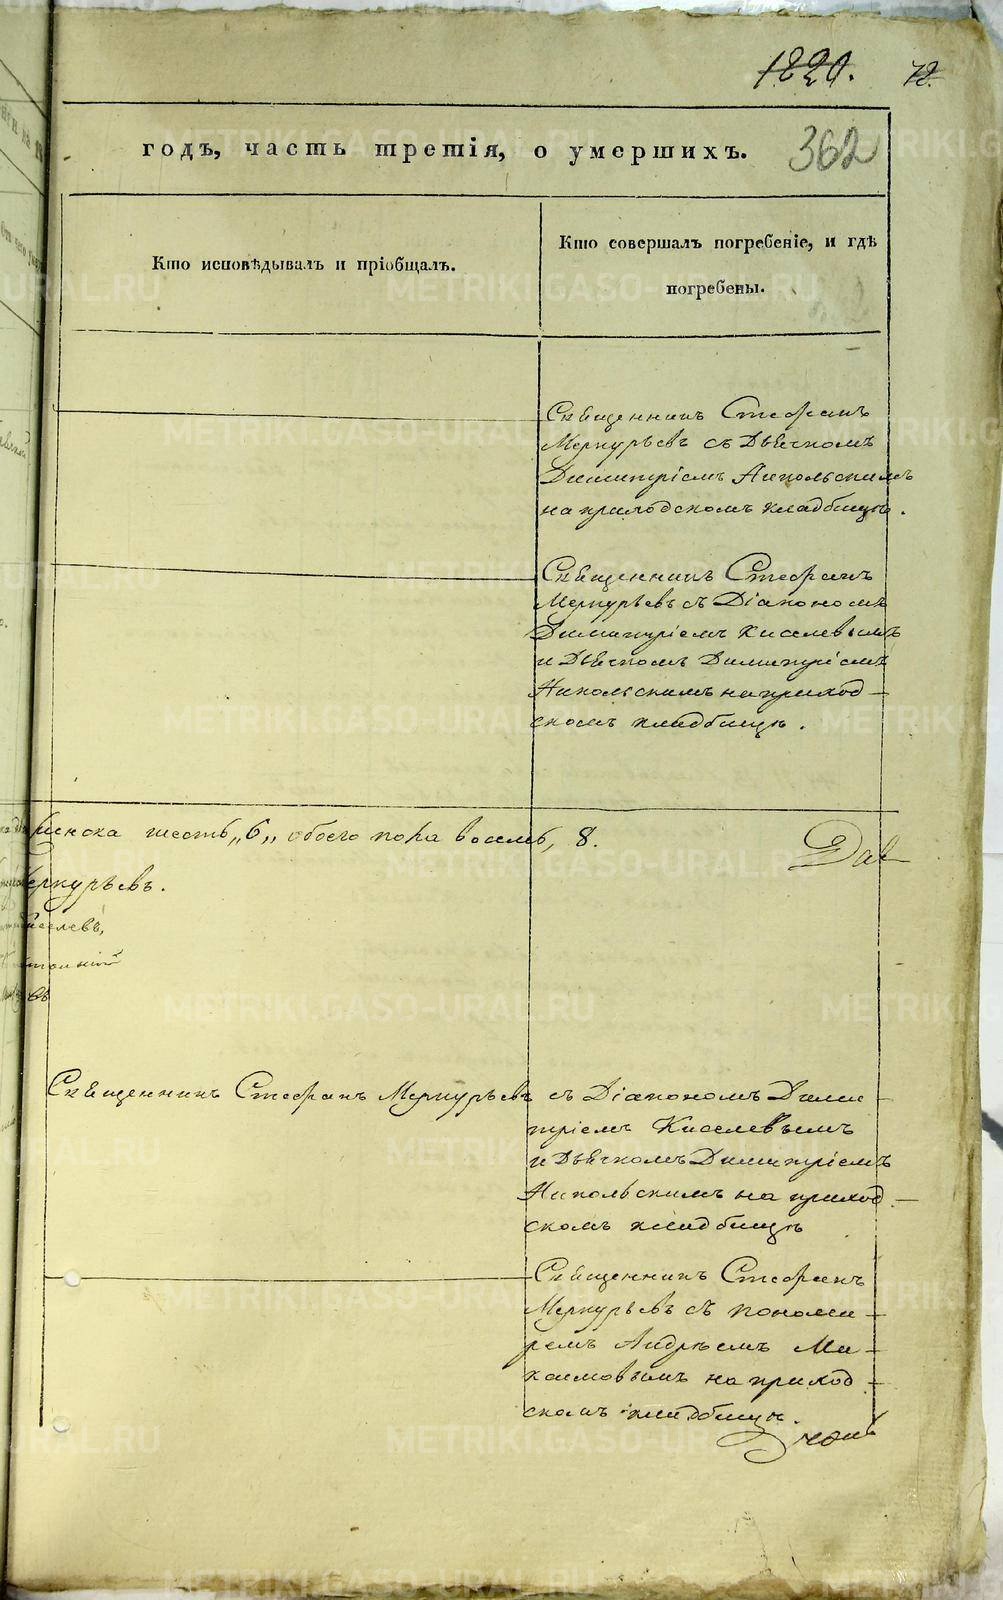 1820. 72.
годъ, часть третія, о умершихъ. 362
Кто исповѣдывалъ и пріобщалъ.
Кто совершалъ погребеніе, и гдѣ
погребены.
Священникъ Стефанъ
Меркурьевъ съ Дьячкомъ
Димитріемъ Никольскимъ
на приходскомъ кладбищѣ.
Священникъ Стефанъ
Меркурьевъ съ Діакономъ
Димитріемъ Киселевымъ
и Дьячкомъ Димитріемъ
Никольскимъ на приход-
скомъ кладбищѣ.
женска шесть „6„ обоего пола восемь, 8.
Меркурьевъ.
Киселевъ,
Священникъ Стефанъ Меркурьевъ съ Діакономъ Дими-
тріемъ Киселевымъ
и Дьячкомъ Димитріемъ
Никольскимъ на приход-
скомъ кладбищѣ
Священникъ Стефанъ
Меркурьевъ съ понома-
ремъ Андреемъ Ма-
ксимовымъ на приход-
скомъ кладбищѣ.
METRIKI.GASO-URAL.RU